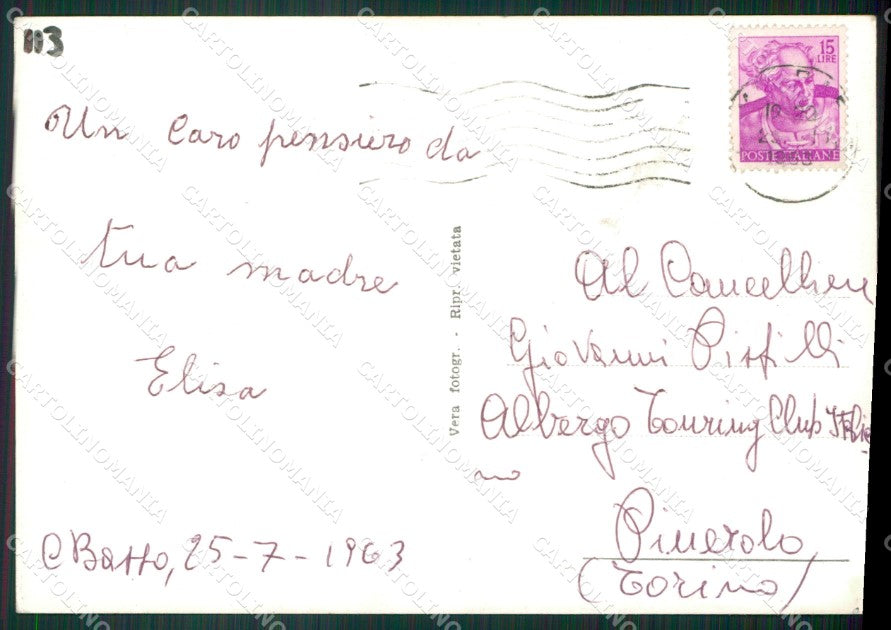 113
15
LIRE
POSTE ITALIANE
Un caro pensiero da
tua madre
Elisa
C Basso, 25-7-1963
Vera fotogr. - Ripr. vietata
Al Cancelliere
Giovanni
Albergo Touring Club Italia
no
Pinerolo
(Torino)
CARTOLINOMANIA